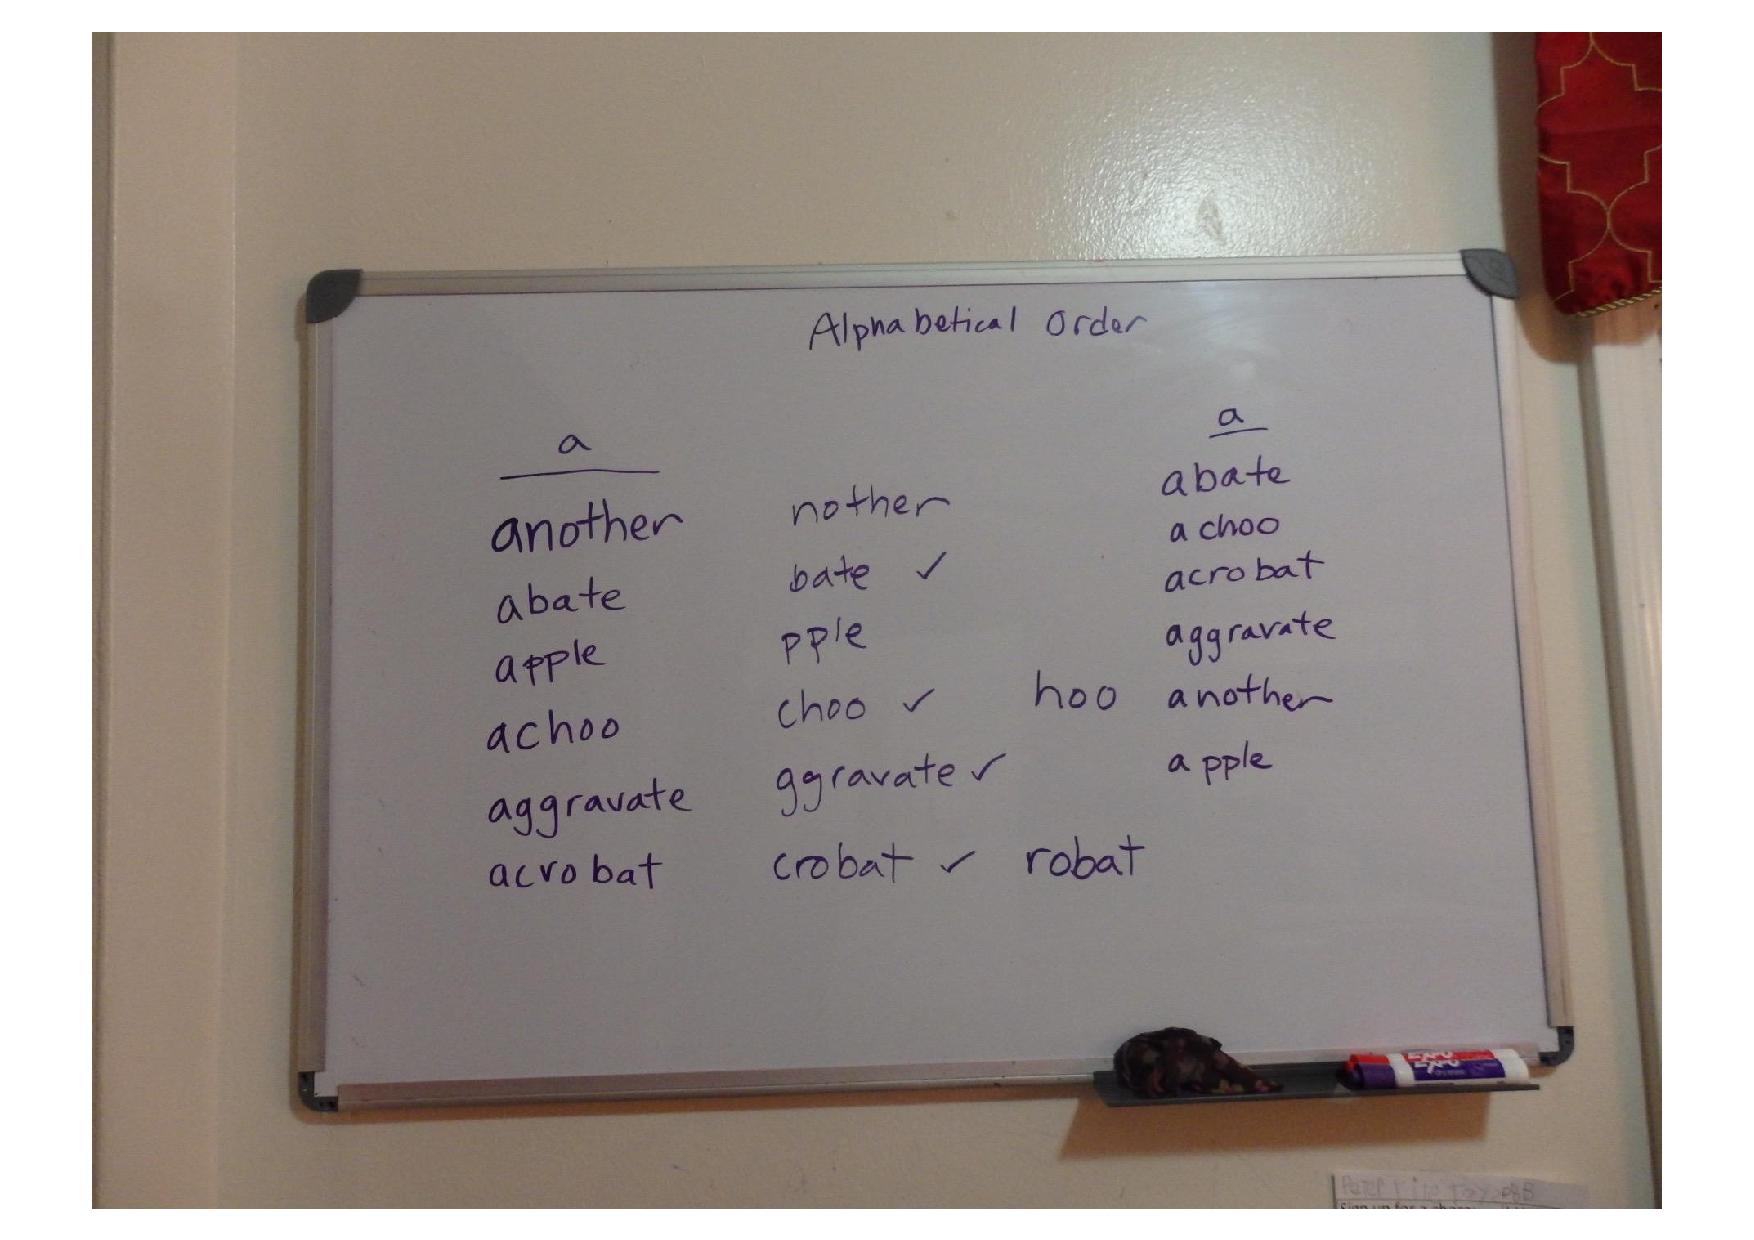 Alphabetical Order
a
another
abate
apple
achoo
aggravate
acrobat
nother
bate ✓
pple
choo ✓ hoo
ggravate ✓
crobat ✓ robat
a
abate
achoo
acrobat
aggravate
another
apple
EXPO
EXPO